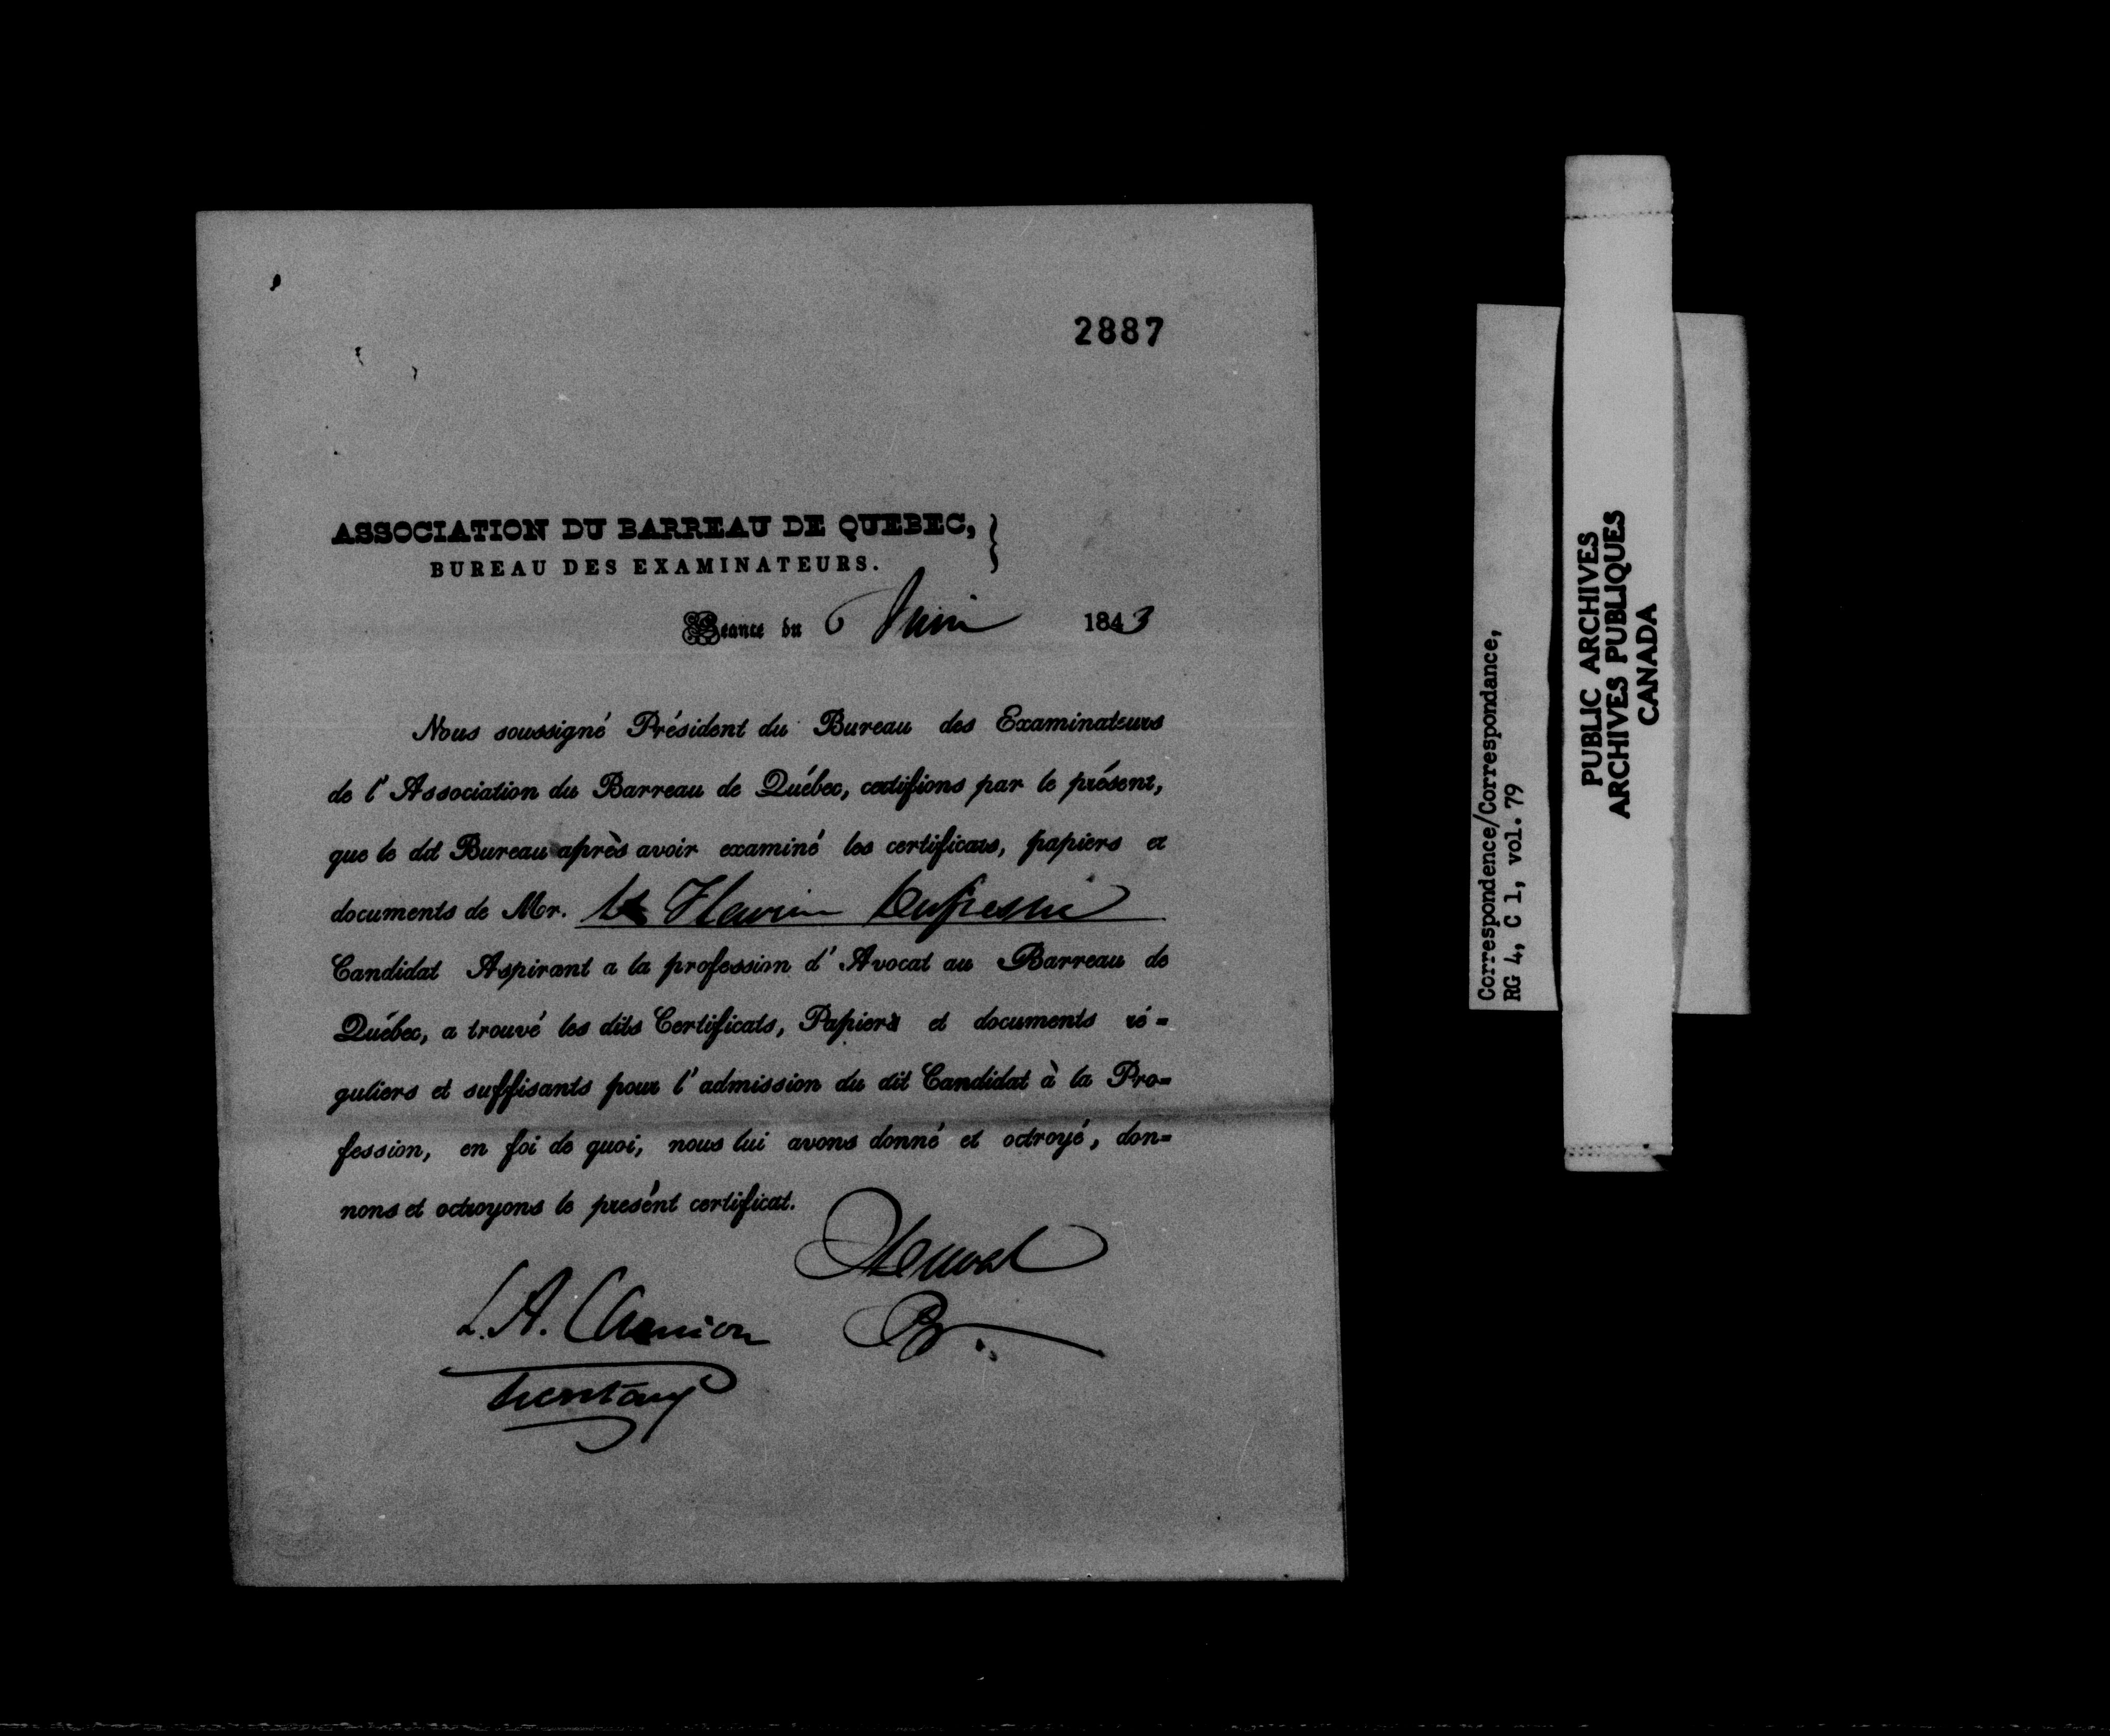 2887
ASSOCIATION DU BARREAU DE QUEBEC,
BUREAU DES EXAMINATEURS.
Séance du 6 Juin 1843
Nous soussigné Président du Bureau des Examinateurs
de l'Association du Barreau de Québec, certifions par le présent,
que le dit Bureau après avoir examiné les certificats, papiers et
documents de Mr.
Candidat Aspirant a la profession d'Avocat au Barreau de
Québec, a trouvé les dits Certificats, Papiers et documents ré=
guliers et suffisants pour l'admission du dit Candidat à la Pro=
fession, en foi de quoi, nous lui avons donné et octroyé, don=
nons et octroyons le présent certificat.
L. A.
Correspondence/Correspondance,
RG 4, C 1, vol. 79
PUBLIC ARCHIVES
ARCHIVES PUBLIQUES
CANADA